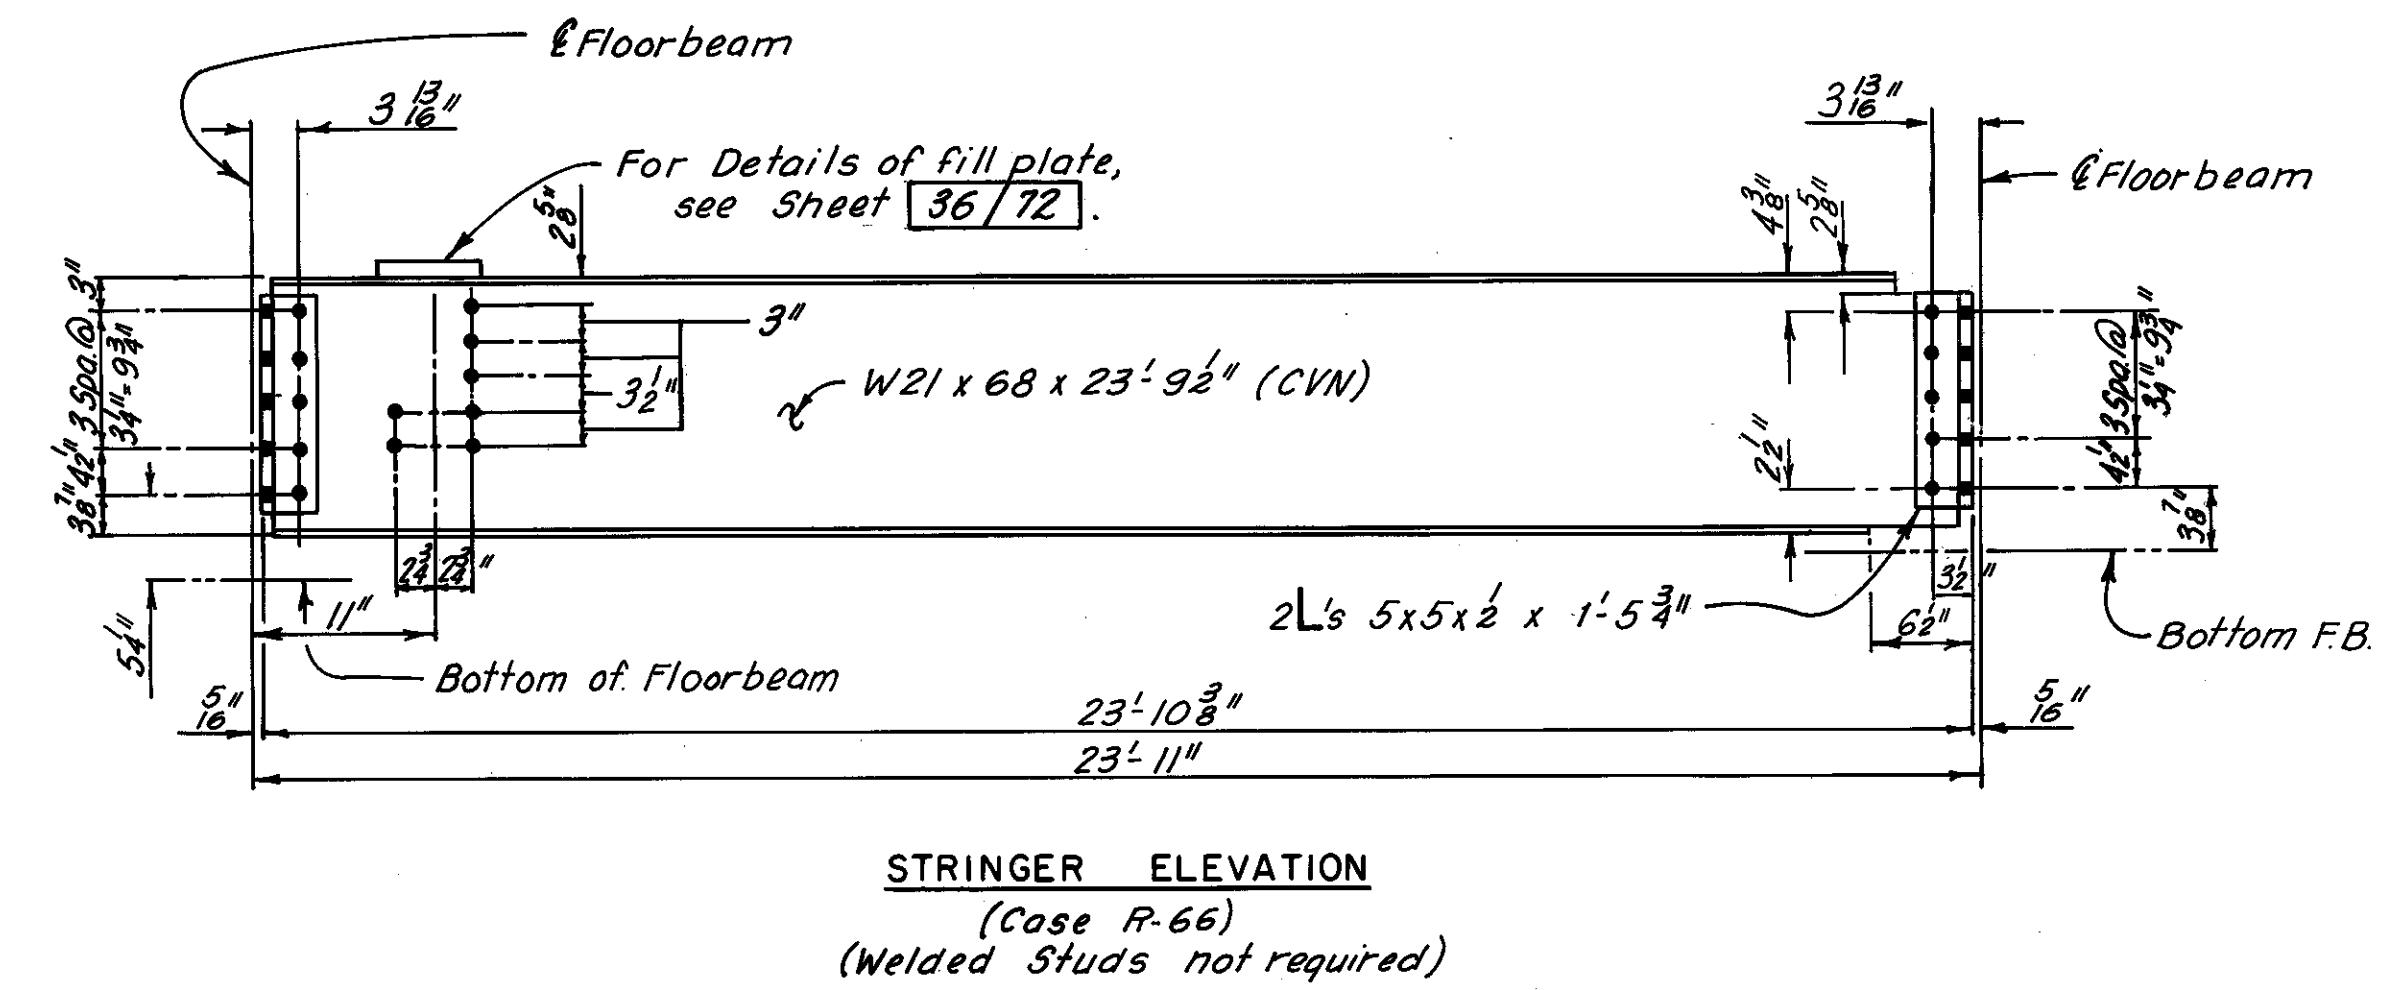 ℄ Floorbeam
3 13/16"
3 13/16"
For Details of fill plate,
see Sheet 36/72.
℄ Floorbeam
2 5/8"
4 3/8"
2 5/8"
3"
3 Spa.@
3 1/4"=9 3/4"
4 1/2"
3 7/8"
3"
3 1/2"
W21 x 68 x 23'-9 1/2" (CVN)
2 1/2"
3 Spa.@
3 1/4"=9 3/4"
4 1/2"
3 7/8"
2 3/4"
2 3/4"
3 1/2"
2 L's 5x5x1/2 x 1'-5 3/4"
6 1/2"
Bottom F.B.
5 1/4"
11"
Bottom of Floorbeam
5/16"
23'-10 3/8"
5/16"
23'-11"
STRINGER ELEVATION
(Case R-66)
(Welded Studs not required)